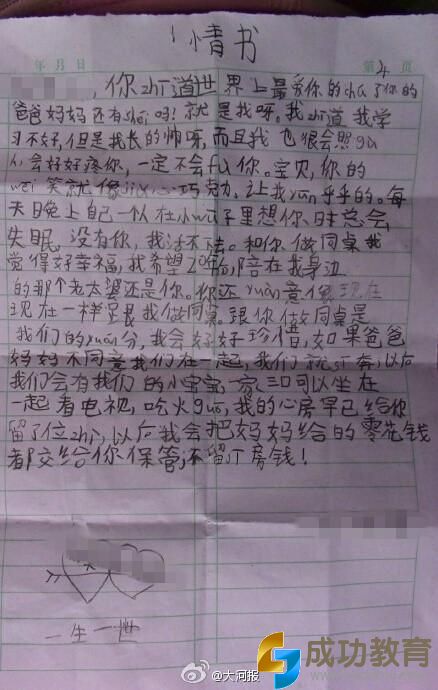 情书
年 月 日 第4页
，你zhī道世界上最爱你的chú了你的
爸爸妈妈还有shéi吗！就是我呀。我zhī道我学
习不好，但是我长的帅呀，而且我也很会照gù
人，会好好疼你，一定不会fù你。宝贝，你的
wēi笑就像巧克力，让我yūn乎乎的。每
天晚上自己一个人在小wū子里想你，时总会
失眠，没有你，我活不下去。和你做同桌我
觉得好幸福，我希望20年后，陪在我身边
的那个老太婆还是你。你还yuàn意像现在
现在一样跟我做同桌。跟你做同桌是
我们的yuán分，我会好好珍惜，如果爸爸
妈妈不同意我们在一起，我们就奔，以后
我们会有我们的小宝宝，一家三口可以坐在
一起看电视，吃火guō，我的心房早已给你
留了位zhì，以后我会把妈妈给的零花钱
都交给你保管，不留房钱！
一生一世
@大河报
成功教育